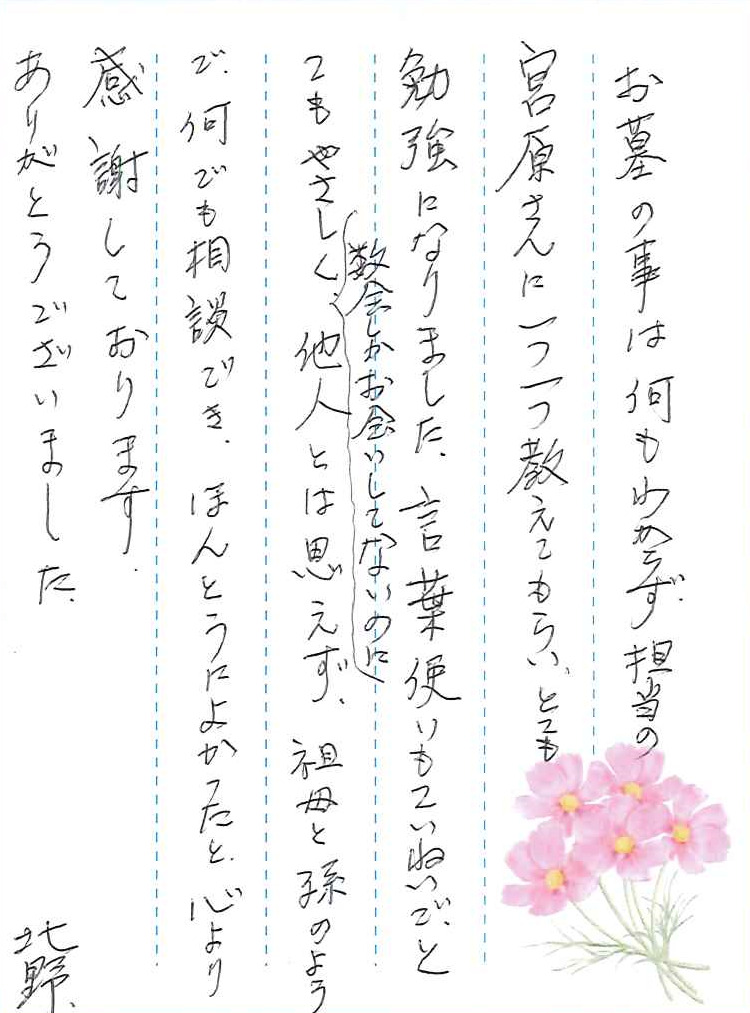 お墓の事は何もわからず、担当の
宮原さんに一つ一つ教えてもらい、とても
勉強になりました、言葉使いもていねいで、と
数会しかお会いしてないのに
てもやさしく、他人とは思えず、祖母と孫のよう
で、何でも相談でき、ほんとうによかったと、心より
感謝しております、
ありがとうございました、
北野、